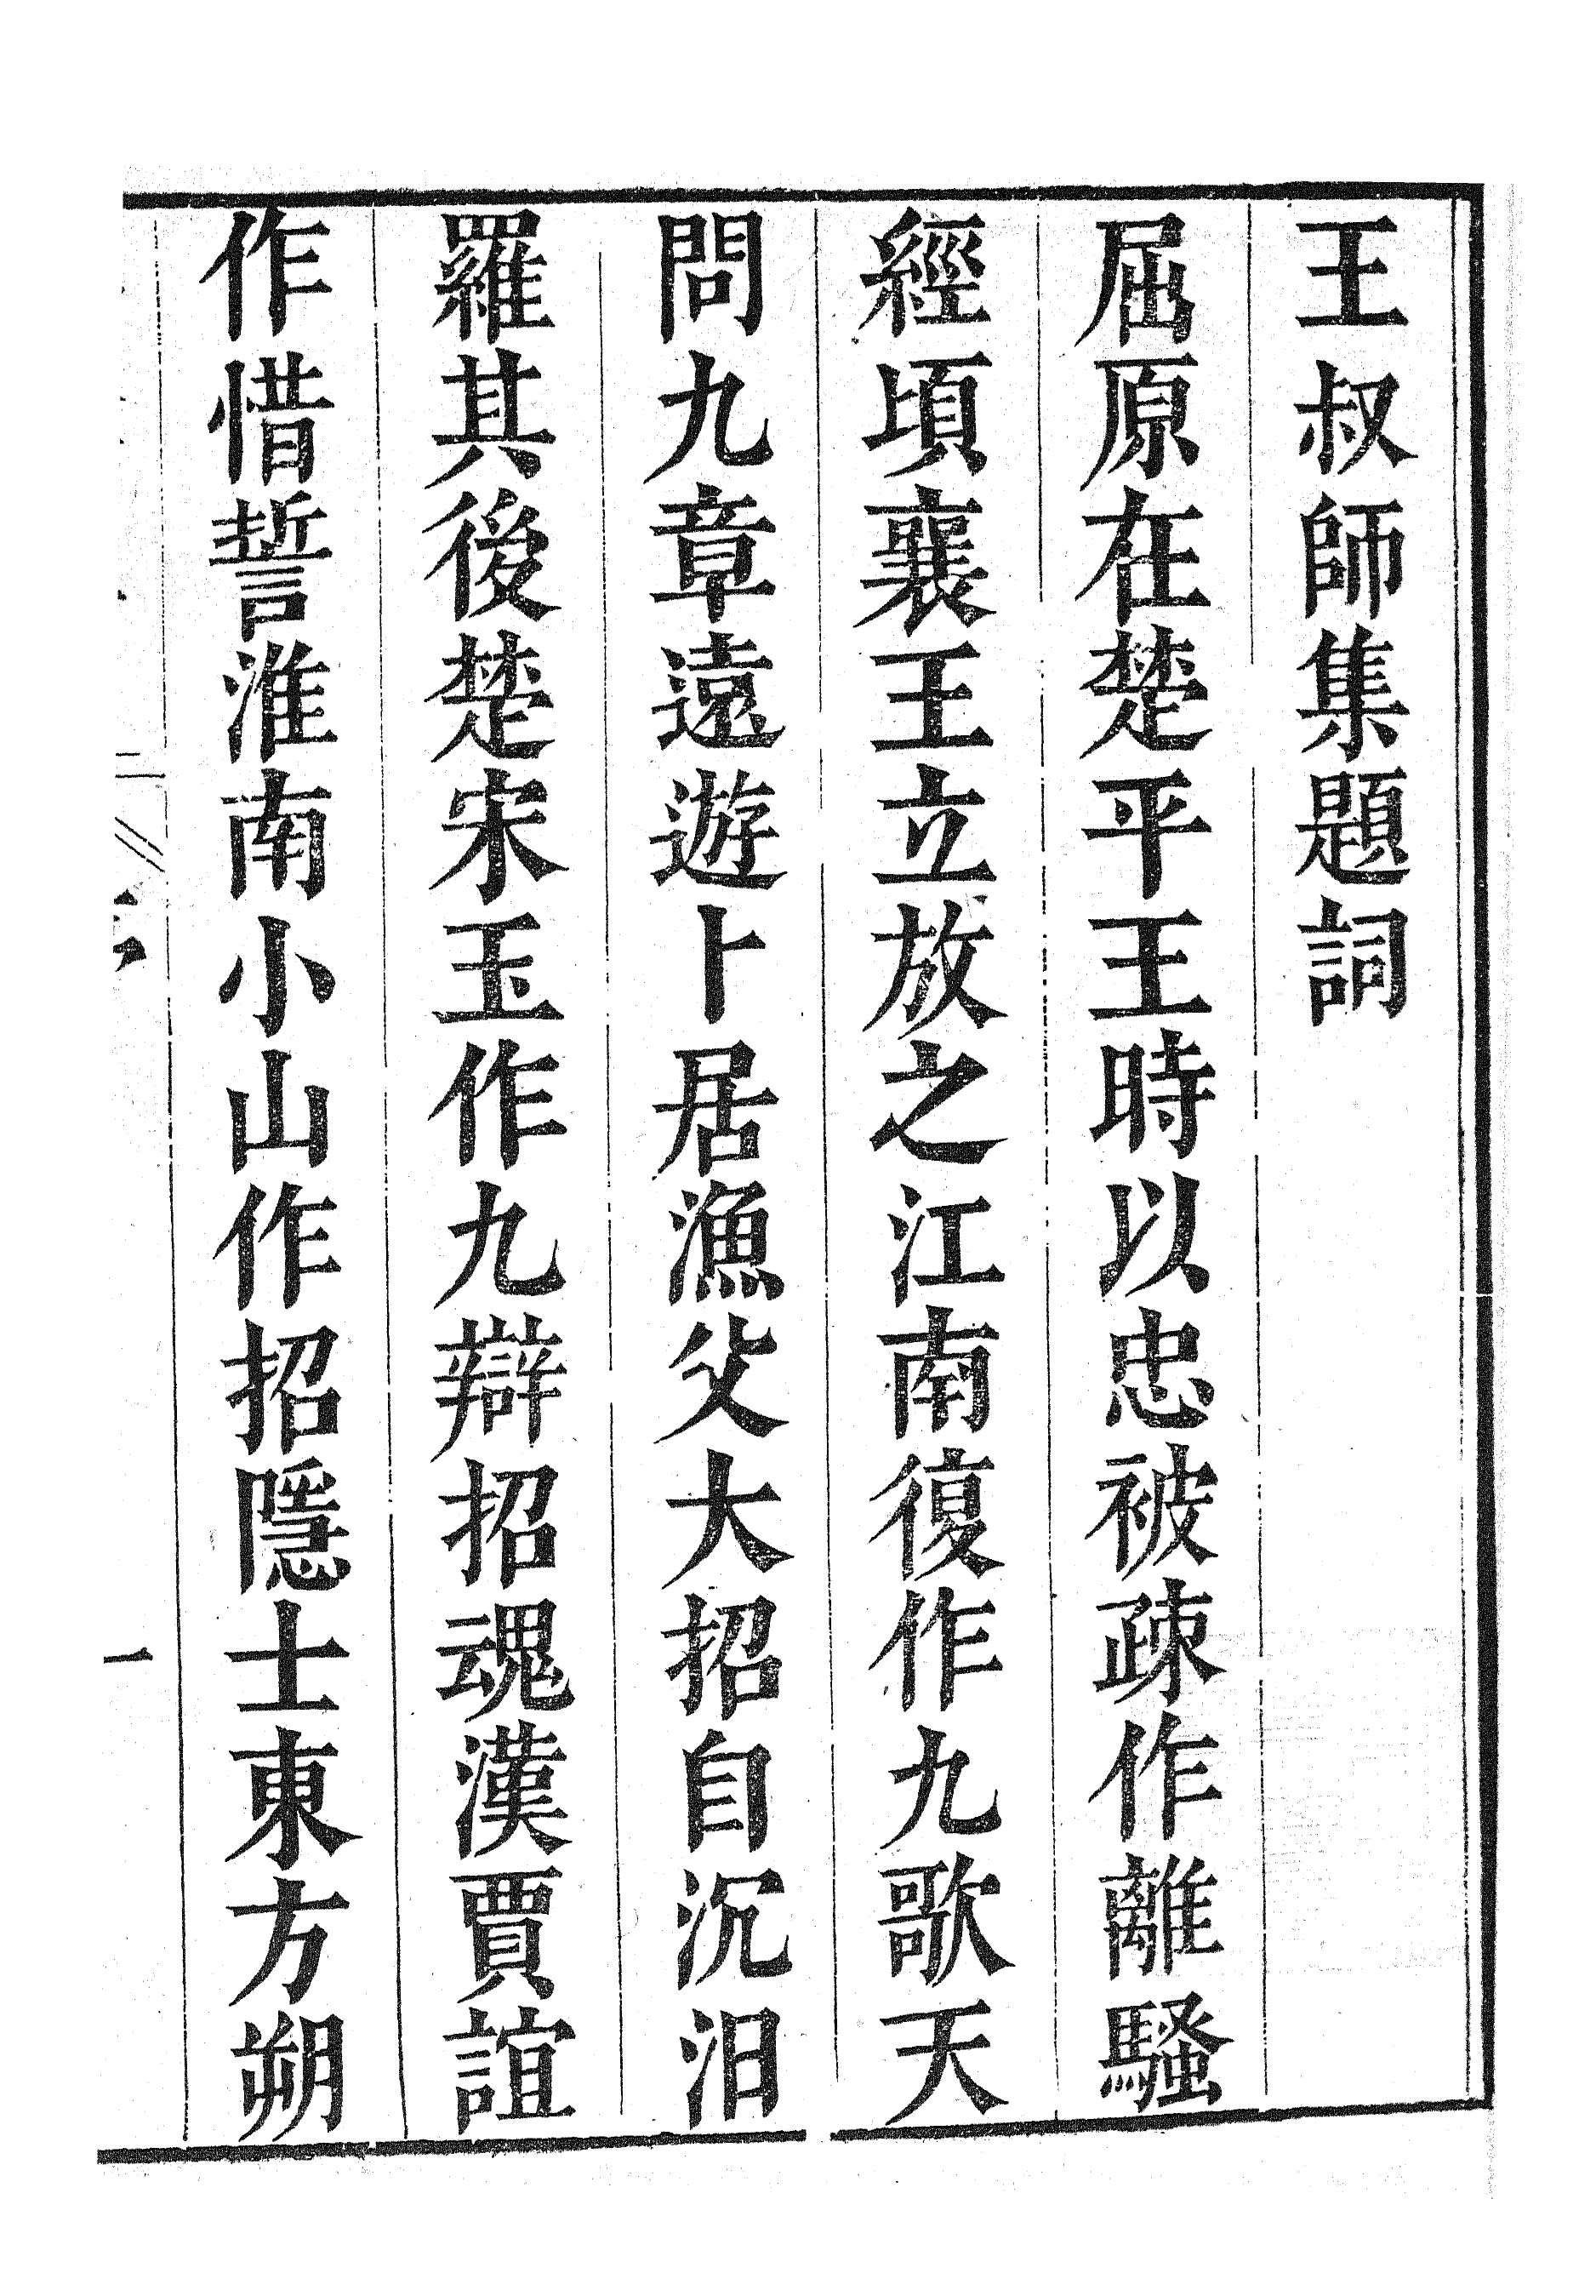 王叔師集題詞
屈原在楚平王時以忠被疎作離騷
經頃襄王立放之江南復作九歌天
問九章遠遊卜居漁父大招自沉汨
羅其後楚宋玉作九辯招魂漢賈誼
作惜誓淮南小山作招隱士東方朔
一